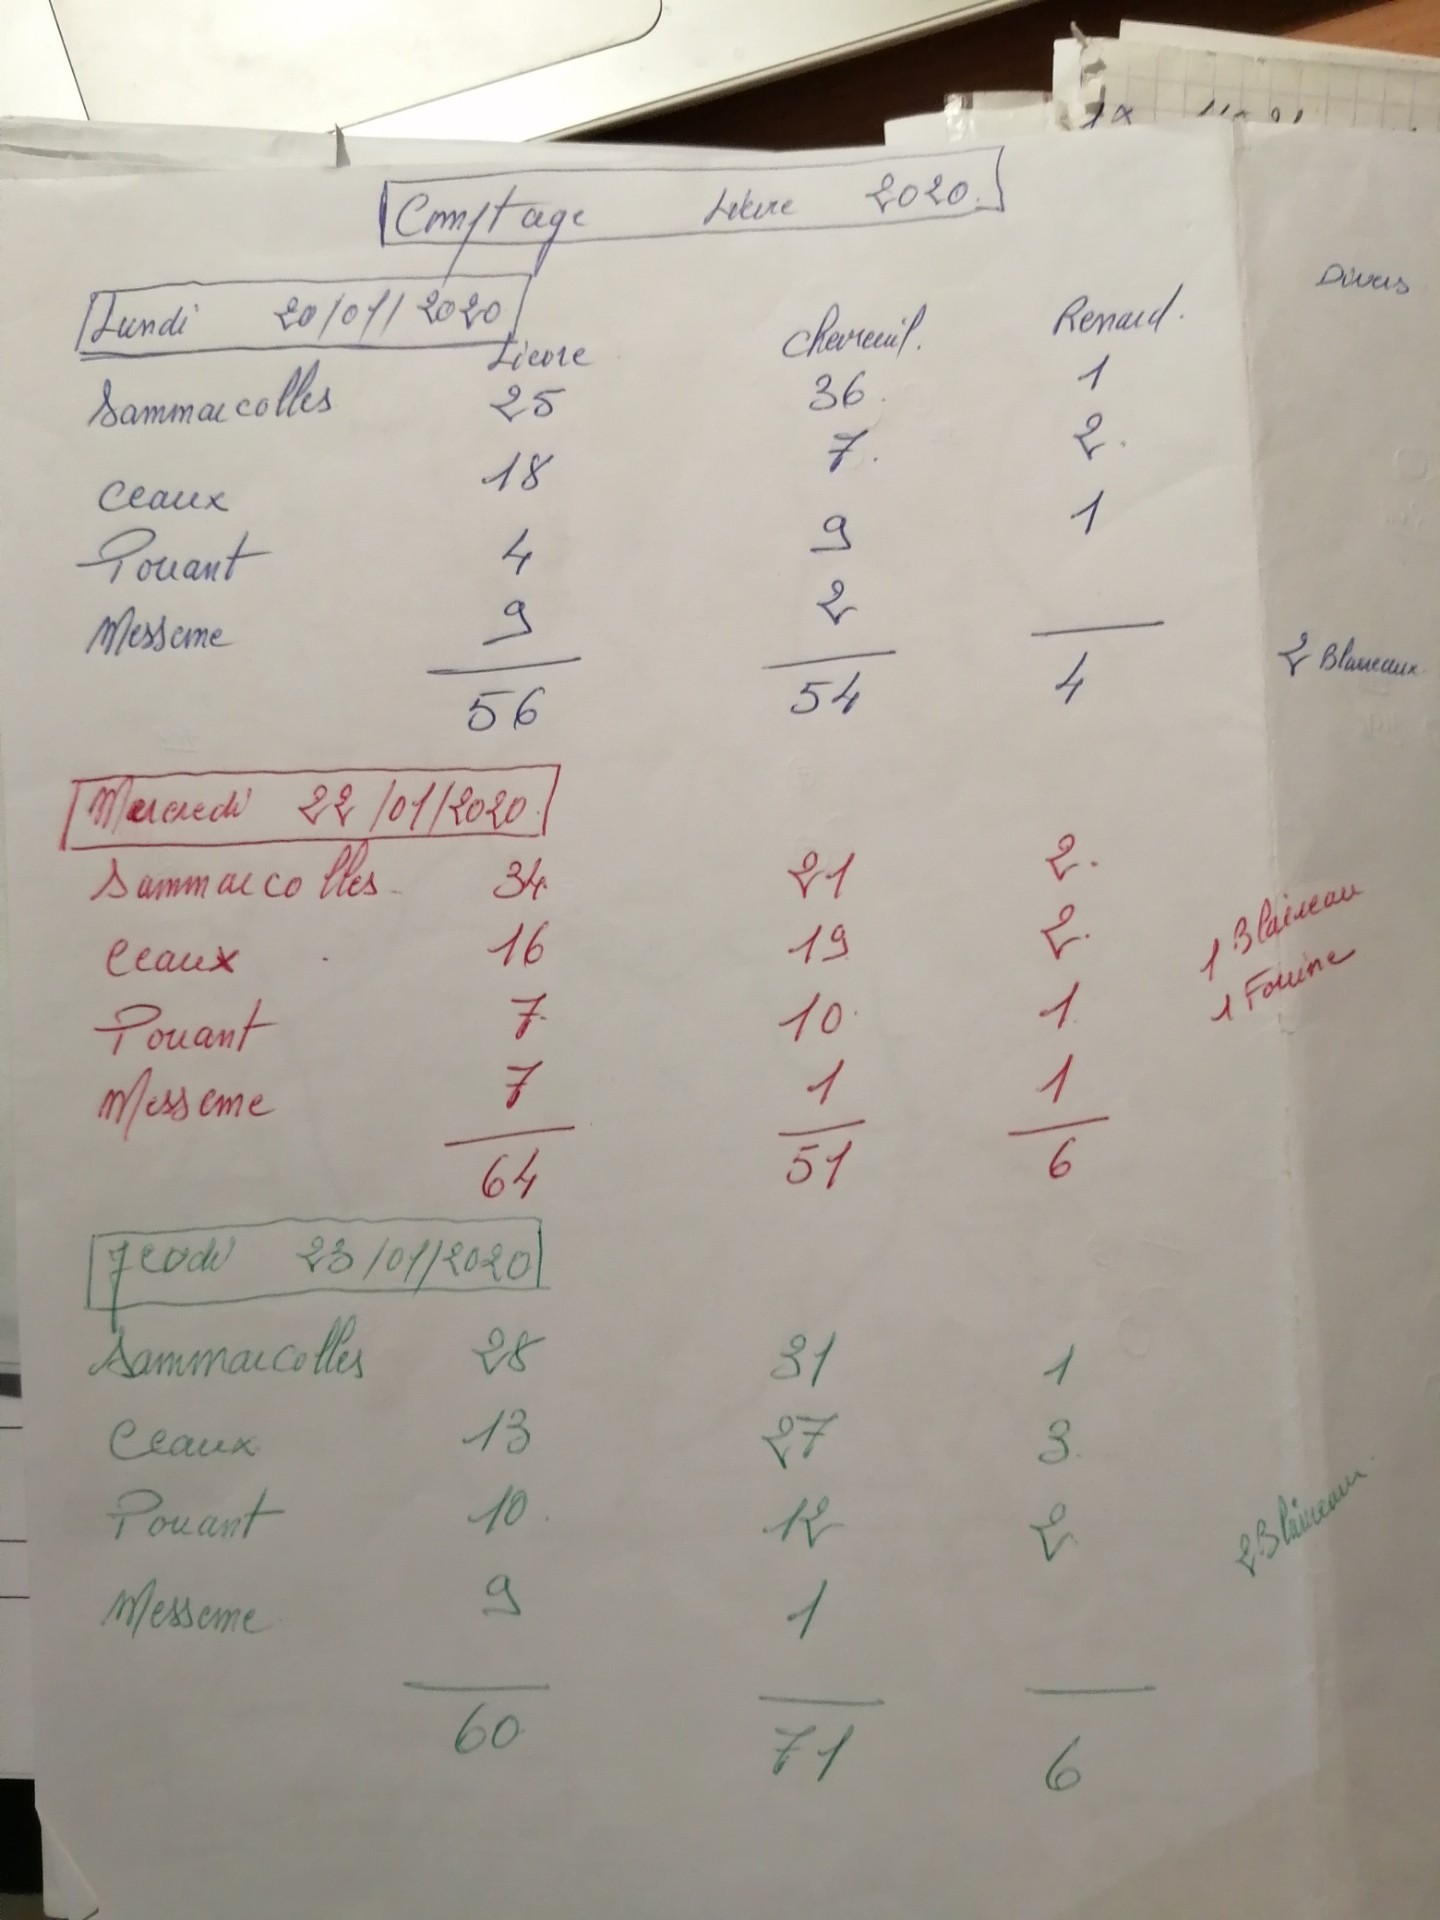 Comptage Lièvre 2020.
Divers
Lundi 20/01/2020
Lievre Chevreuil. Renard.
Sammarcolles 25 36. 1
Ceaux 18 7. 2.
Pouant 4 9 1
Messeme 9 2
2 Blaireaux
56 54 4
Mercredi 22/01/2020.
Sammarcolles 34 21 2.
Ceaux 16 19 2.
1 Blaireau
Pouant 7 10 1
1 Fouine
Messeme 7 1 1
64 51 6
Jeudi 23/01/2020
Sammarcolles 28 31 1
Ceaux 13 27 3
Pouant 10 12 2
2 Blaireau
Messeme 9 1
60 71 6